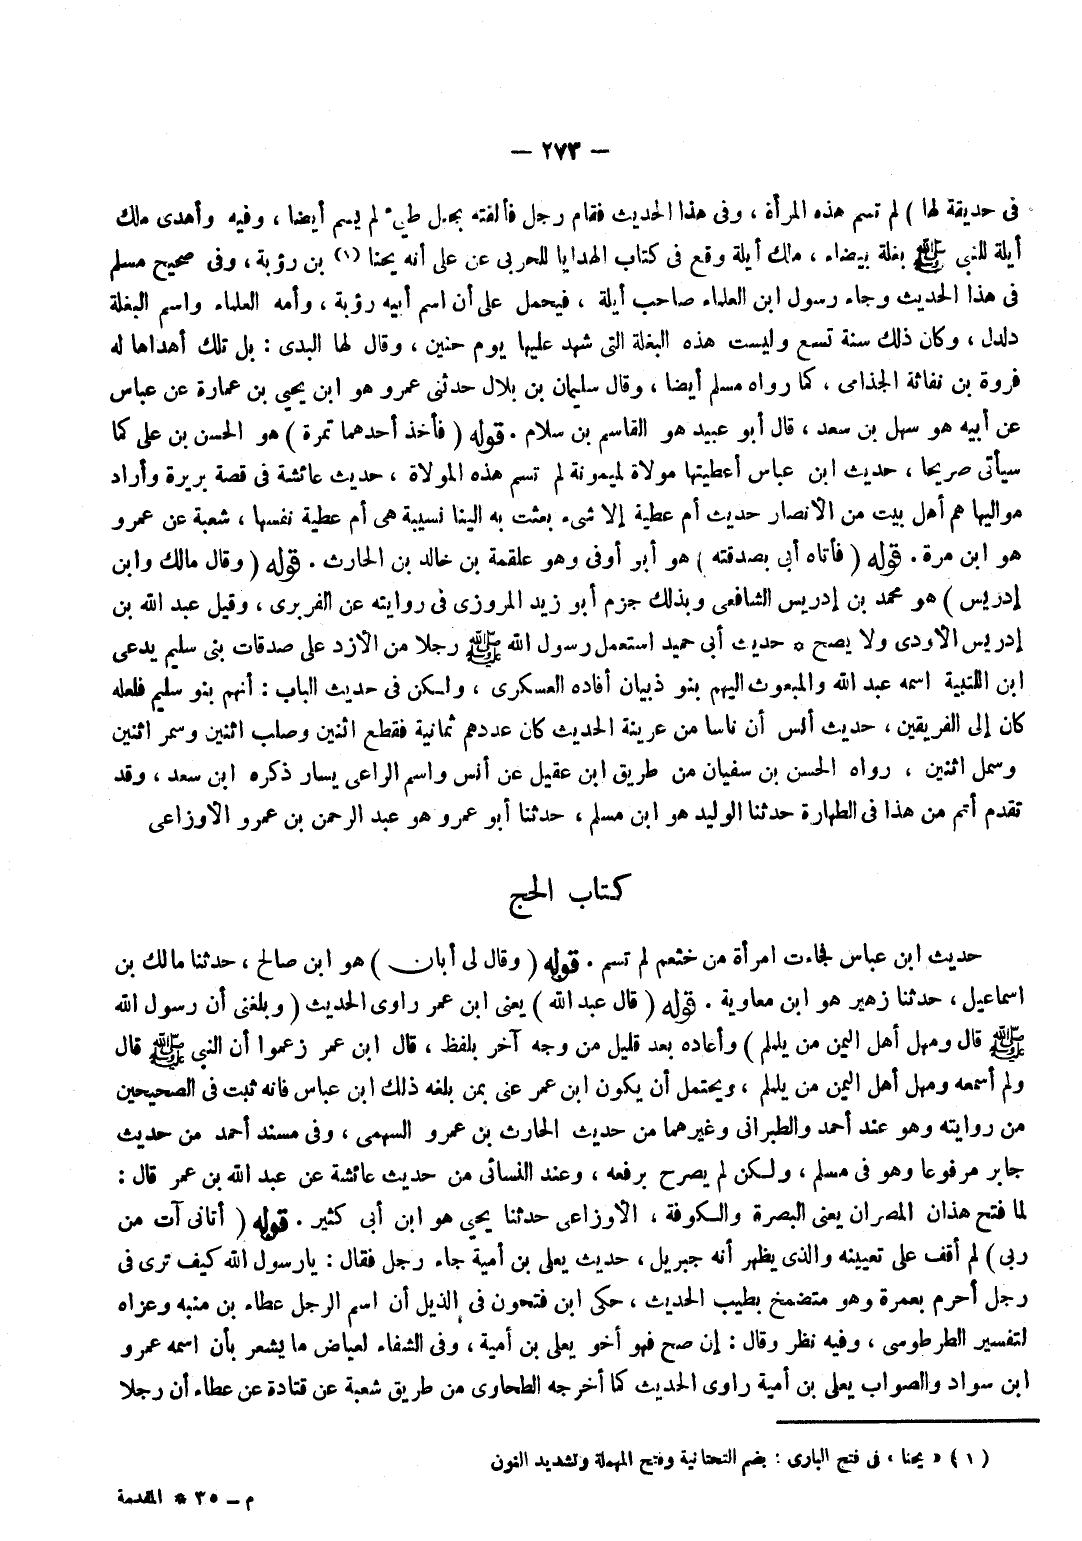 — ٢٧٣ —
فى حديقة لها ) لم تسم هذه المرأة ، وفى هذا الحديث فقام رجل فألفته بجبل طيء لم يسم أيضا ، وفيه وأهدى ملك
أيلة للنبى ﷺ بغلة بيضاء ، ملك أيلة وقع فى كتاب الهدايا للحربى عن على أنه يحنا (١) بن رؤبة ، وفى صحيح مسلم
فى هذا الحديث وجاء رسول ابن العلماء صاحب أيلة ، فيحمل على أن اسم أبيه رؤبة ، وأمه العلماء واسم البغلة
دلدل ، وكان ذلك سنة تسع وليست هذه البغلة التى شهد عليها يوم حنين ، وقال لها البدى : بل تلك أهداها له
فروة بن نفاثة الجذامى ، كما رواه مسلم أيضا ، وقال سليمان بن بلال حدثنى عمرو هو ابن يحيى بن عمارة عن عباس
عن أبيه هو سهل بن سعد ، قال أبو عبيد هو القاسم بن سلام . قوله ( فأخذ أحدهما تمرة ) هو الحسن بن على كما
سيأتى صريحا ، حديث ابن عباس أعطيتها مولاة لميمونة لم تسم هذه المولاة ، حديث عائشة فى قصة بريرة وأراد
مواليها هم أهل بيت من الأنصار حديث أم عطية إلا شىء بعثت به الينا نسيبة هى أم عطية نفسها ، شعبة عن عمرو
هو ابن مرة . قوله ( فأتاه أبى بصدقته ) هو أبو أوفى وهو علقمة بن خالد بن الحارث . قوله ( وقال مالك وابن
إدريس ) هو محمد بن إدريس الشافعى وبذلك جزم أبو زيد المروزى فى روايته عن الفربرى ، وقيل عبد الله بن
إدريس الأودى ولا يصح * حديث أبى حميد استعمل رسول الله ﷺ رجلا من الأزد على صدقات بنى سليم يدعى
ابن اللتبية اسمه عبد الله والمبعوث اليهم بنو ذبيان أفاده العسكرى ، ولكن فى حديث الباب : أنهم بنو سليم فلعله
كان إلى الفريقين ، حديث أنس أن ناسا من عرينة الحديث كان عددهم ثمانية فقطع اثنين وصلب اثنين وسمر اثنين
وسمل اثنين ، رواه الحسن بن سفيان من طريق ابن عقيل عن أنس واسم الراعى يسار ذكره ابن سعد ، وقد
تقدم أتم من هذا فى الطهارة حدثنا الوليد هو ابن مسلم ، حدثنا أبو عمرو هو عبد الرحمن بن عمرو الأوزاعى
كتاب الحج
حديث ابن عباس فجاءت امرأة من خثعم لم تسم . قوله ( وقال لى أبان ) هو ابن صالح ، حدثنا مالك بن
اسماعيل ، حدثنا زهير هو ابن معاوية . قوله ( قال عبد الله ) يعنى ابن عمر راوى الحديث ( وبلغنى أن رسول الله
ﷺ قال ومهل أهل اليمن من يلملم ) وأعاده بعد قليل من وجه آخر بلفظ ، قال ابن عمر زعموا أن النبى ﷺ قال
ولم أسمعه ومهل أهل اليمن من يلملم ، ويحتمل أن يكون ابن عمر عنى بمن بلغه ذلك ابن عباس فانه ثبت فى الصحيحين
من روايته وهو عند أحمد والطبرانى وغيرهما من حديث الحارث بن عمرو السهمى ، وفى مسند أحمد من حديث
جابر مرفوعا وهو فى مسلم ، ولكن لم يصرح برفعه ، وعند النسائى من حديث عائشة عن عبد الله بن عمر قال :
لما فتح هذان المصران يعنى البصرة والكوفة ، الأوزاعى حدثنا يحيى هو ابن أبى كثير . قوله ( أتانى آت من
ربى ) لم أقف على تعيينه والذى يظهر أنه جبريل ، حديث يعلى بن أمية جاء رجل فقال : يارسول الله كيف ترى فى
رجل أحرم بعمرة وهو متضمخ بطيب الحديث ، حكى ابن فتحون فى الذيل أن اسم الرجل عطاء بن منبه وعزاه
لتفسير الطرطوسى ، وفيه نظر وقال : إن صح فهو أخو يعلى بن أمية ، وفى الشفاء لعياض ما يشعر بأن اسمه عمرو
ابن سواد والصواب يعلى بن أمية راوى الحديث كما أخرجه الطحاوى من طريق شعبة عن قتادة عن عطاء أن رجلا
( ١ ) « يحنا » فى فتح البارى : بضم التحتانية وفتح المهملة وتشديد النون
م — ٣٥ * المقدمة